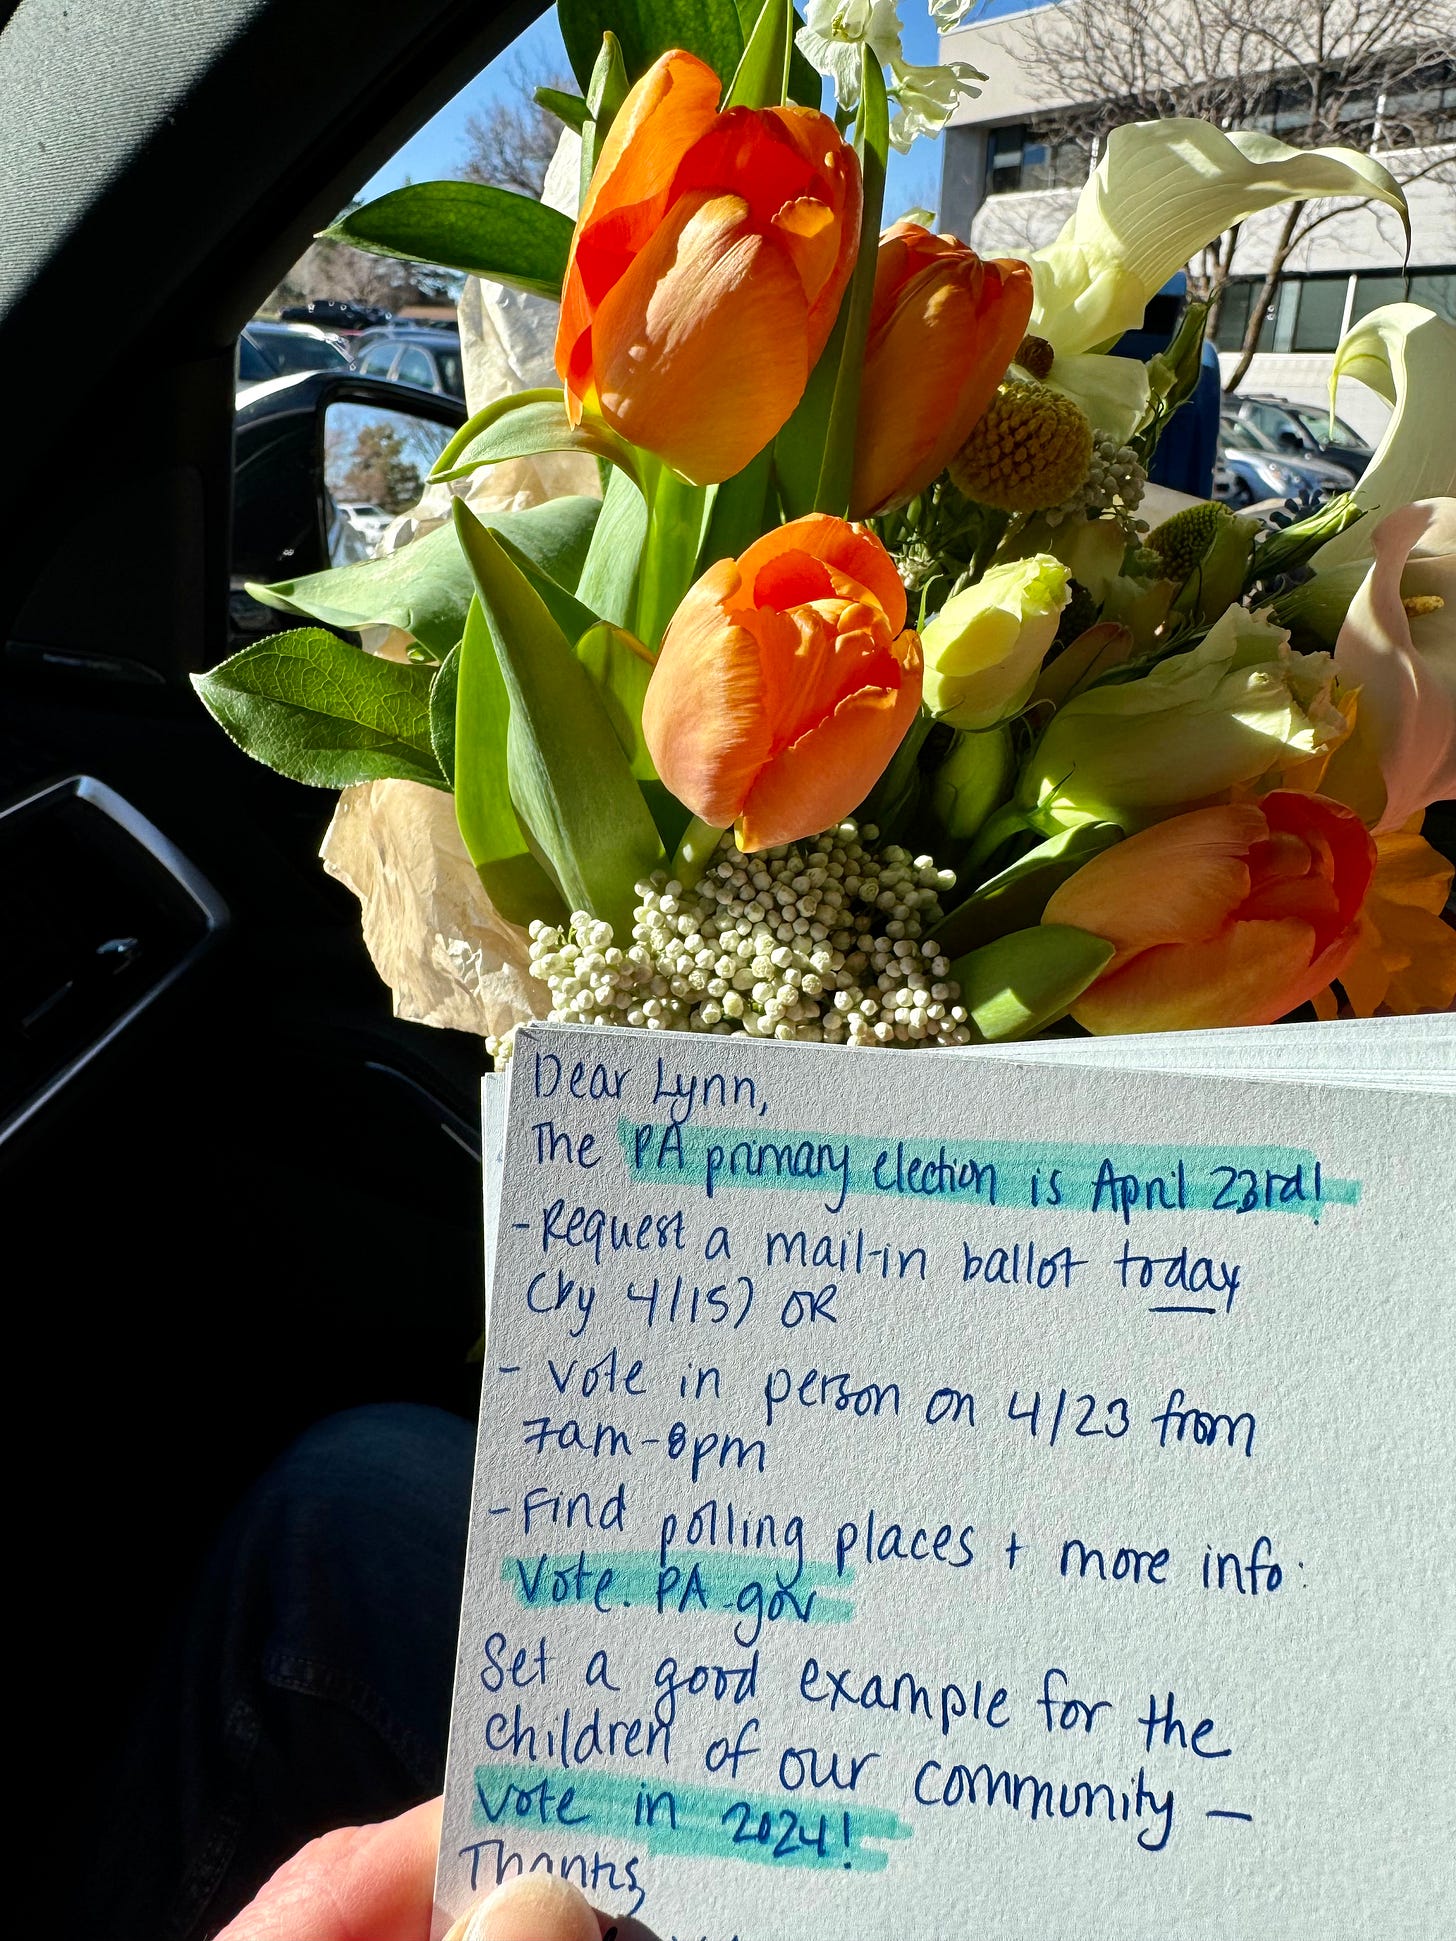 Dear Lynn,
The PA primary election is April 23rd!
- Request a mail-in ballot today
(by 4/15) OR
- vote in person on 4/23 from
7am-8pm
- Find polling places + more info:
Vote.PA.gov
Set a good example for the
children of our community -
vote in 2024!
Thanks,